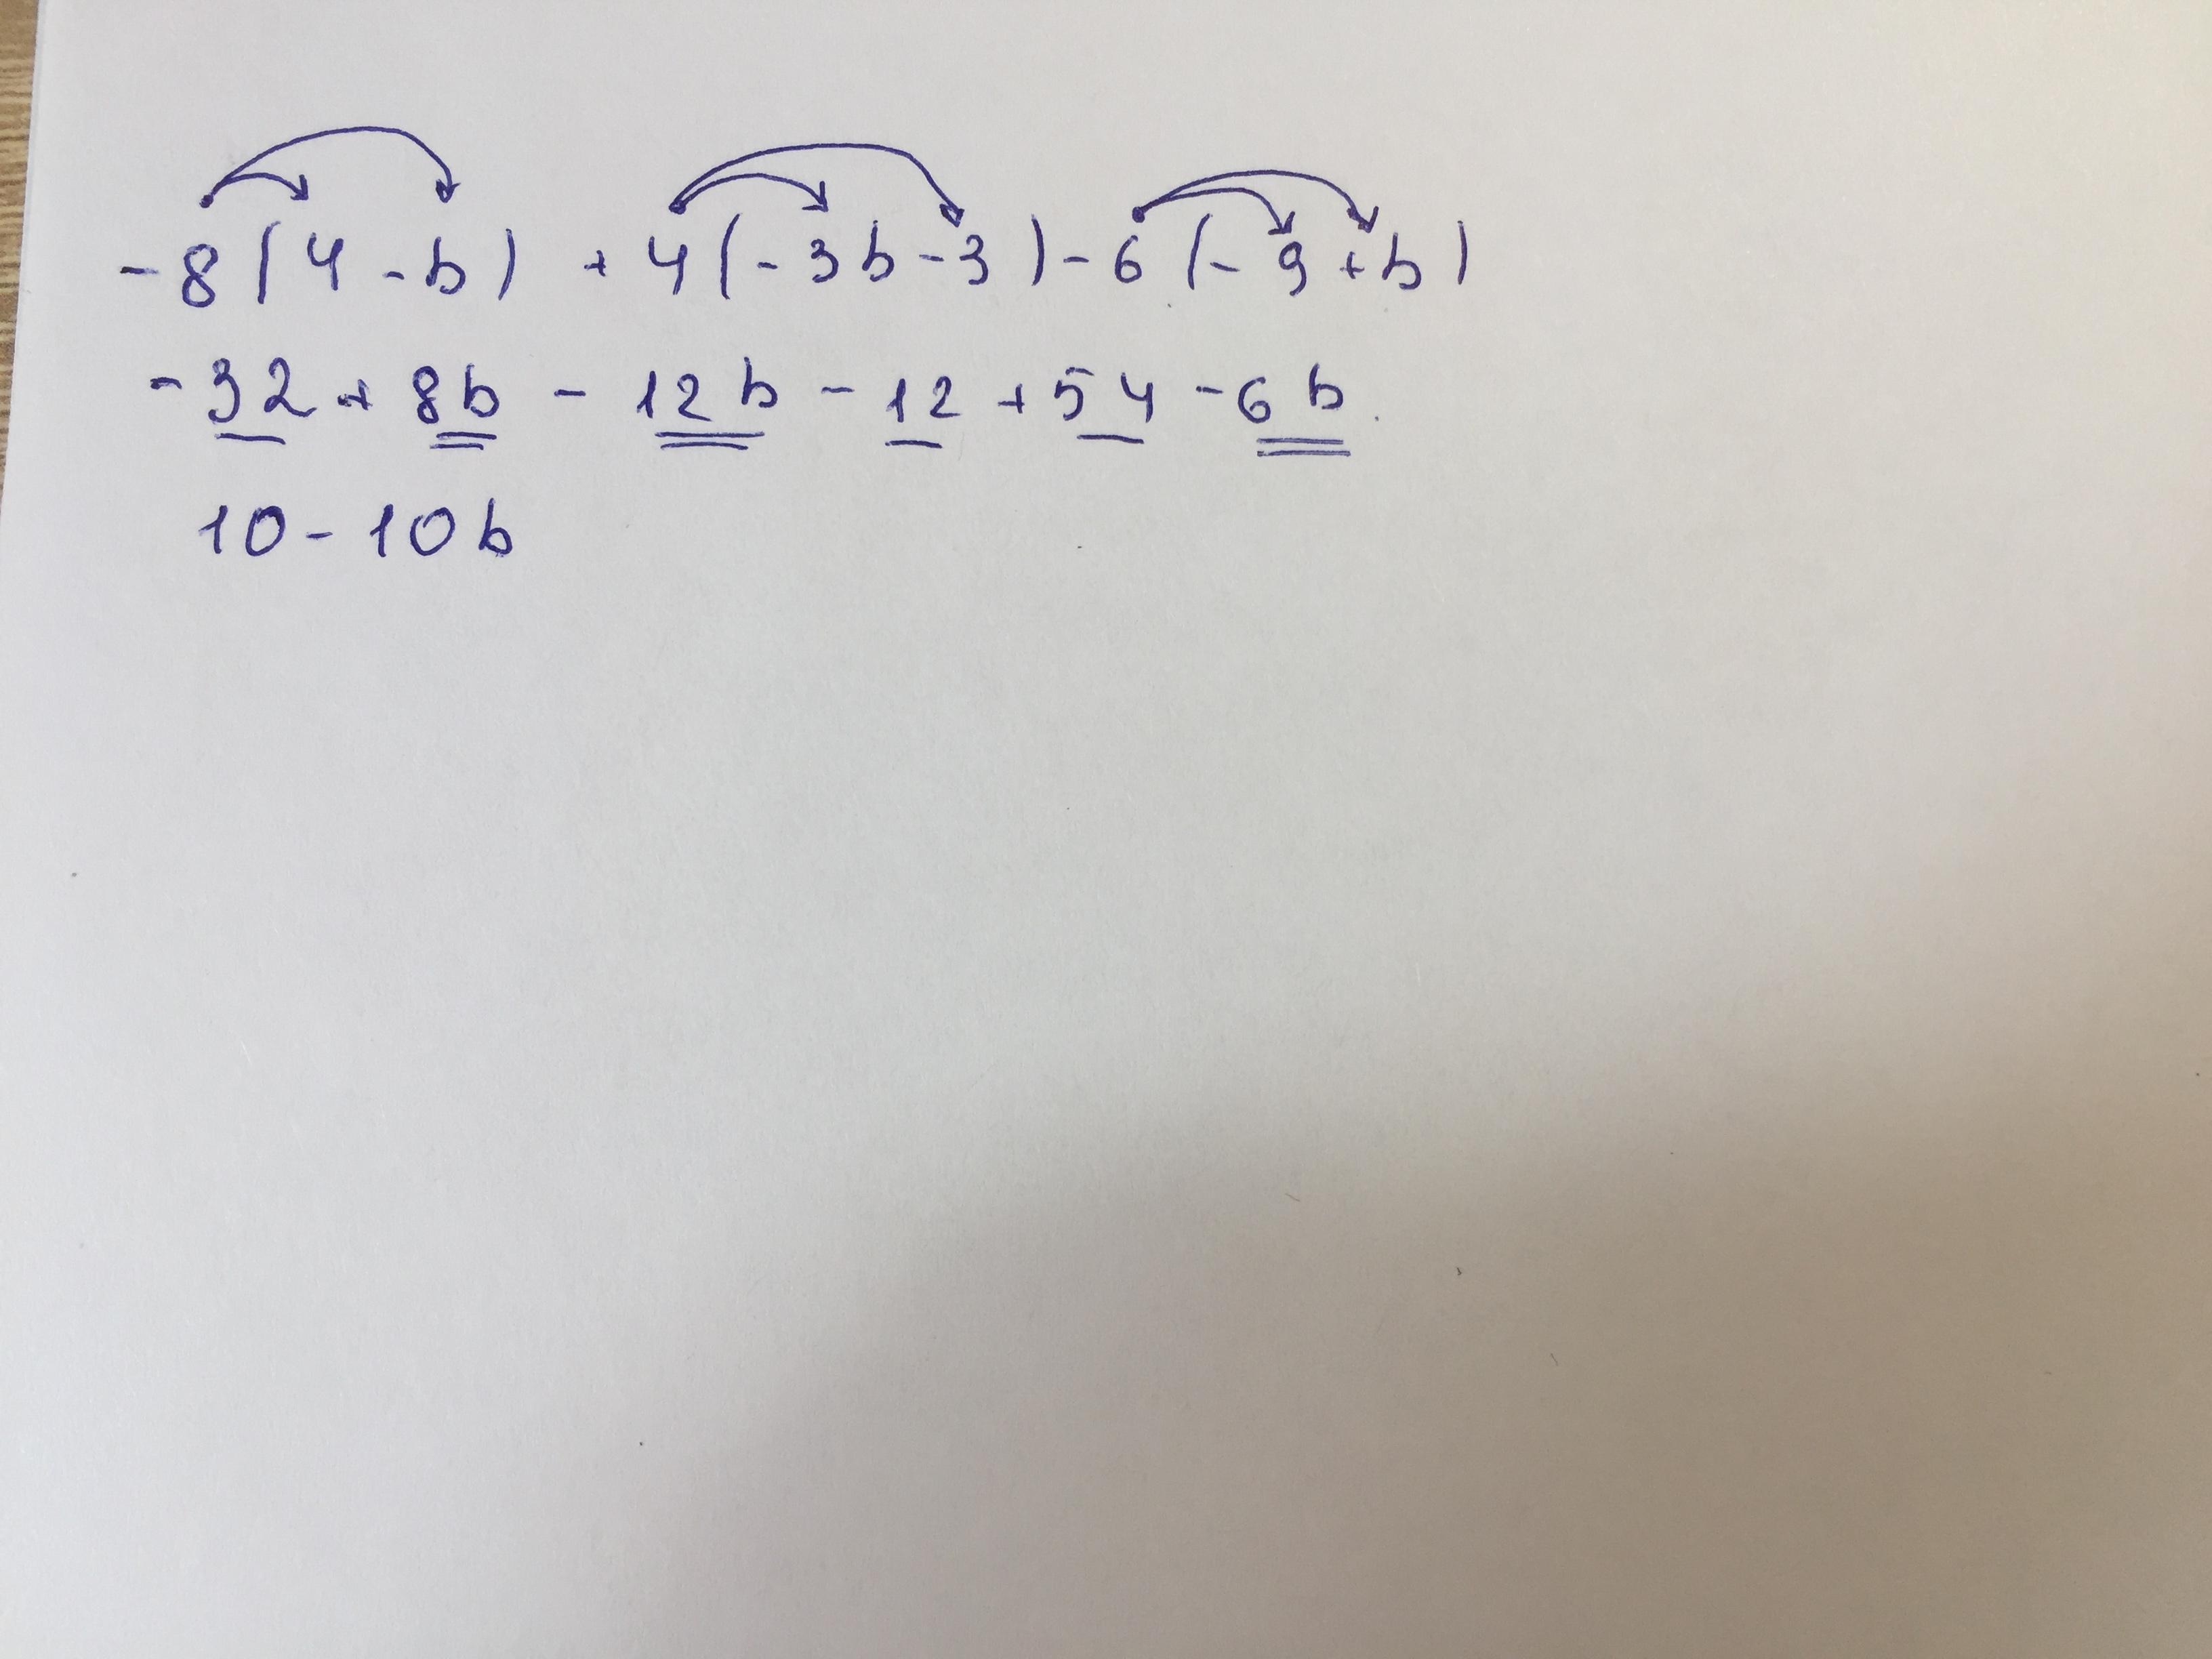 -8(4-b) +4(-3b-3)-6(-9+b)
-32+8b-12b-12+54-6b.
10-10b